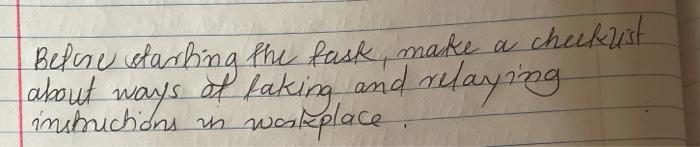 Before starting the task, make a checklist
about ways of taking and relaying
instructions in workplace.